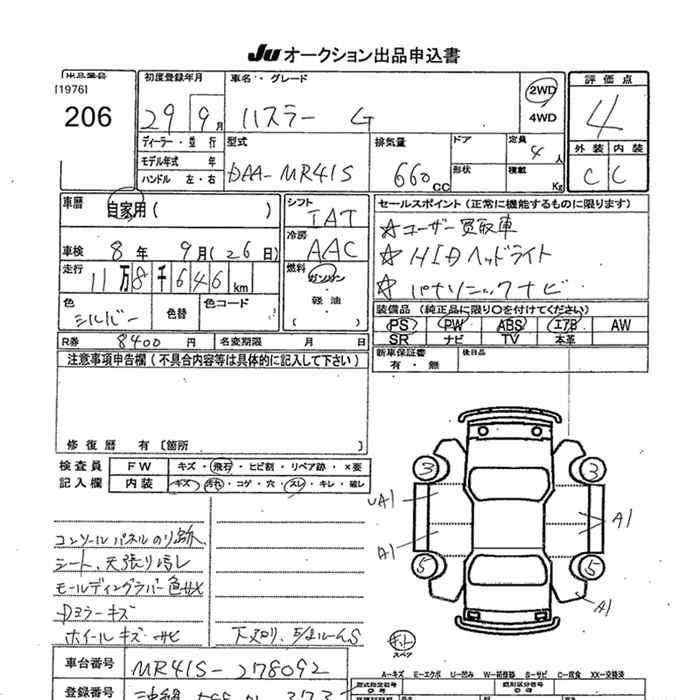 JU オークション出品申込書
出品番号
[1976]
206
初度登録年月
29 9月
車名・グレード
ハスラー G
2WD
4WD
評価点
4
外装 内装
C C
ディーラー・並行
モデル年式 年
ハンドル 左・右
型式
DAA-MR41S
排気量
660 CC
ドア
形状
定員
4人
積載
Kg
車歴
自家用( )
車検 8年 9月(26日)
走行 11万8千646km
色
シルバー
色替
色コード
シフト
IAT
冷房
AAC
燃料
ガソリン
・
軽油
( )
セールスポイント(正常に機能するものに限ります)
☆ユーザー買取車
☆HIDヘッドライト
☆パナソニックナビ
装備品(純正品に限り○を付けてください)
PS PW ABS エアB AW
SR ナビ TV 本革
新車保証書
有・無
後日品
R券 8400円
名変期限 月 日
注意事項申告欄(不具合内容等は具体的に記入して下さい)
修復歴 有〔箇所 〕
検査員
記入欄
FW キズ・飛石・ヒビ割・リペア跡・×要
内装 キズ・汚れ・コゲ・穴・スレ・キレ・破レ
コンソールパネルのり跡、
シート、天張り汚レ
モールディングラバー色アセ
Dミラーキズ
ホイールキズ・サビ
下スリ、
3
3
5
5
UA1
A1
A1
A1
スペア
A-キズ E-エクボ U-凹み W-補修跡 S-サビ C-腐食 XX-交換済
車台番号 MR41S-278092
登録番号 沖縄